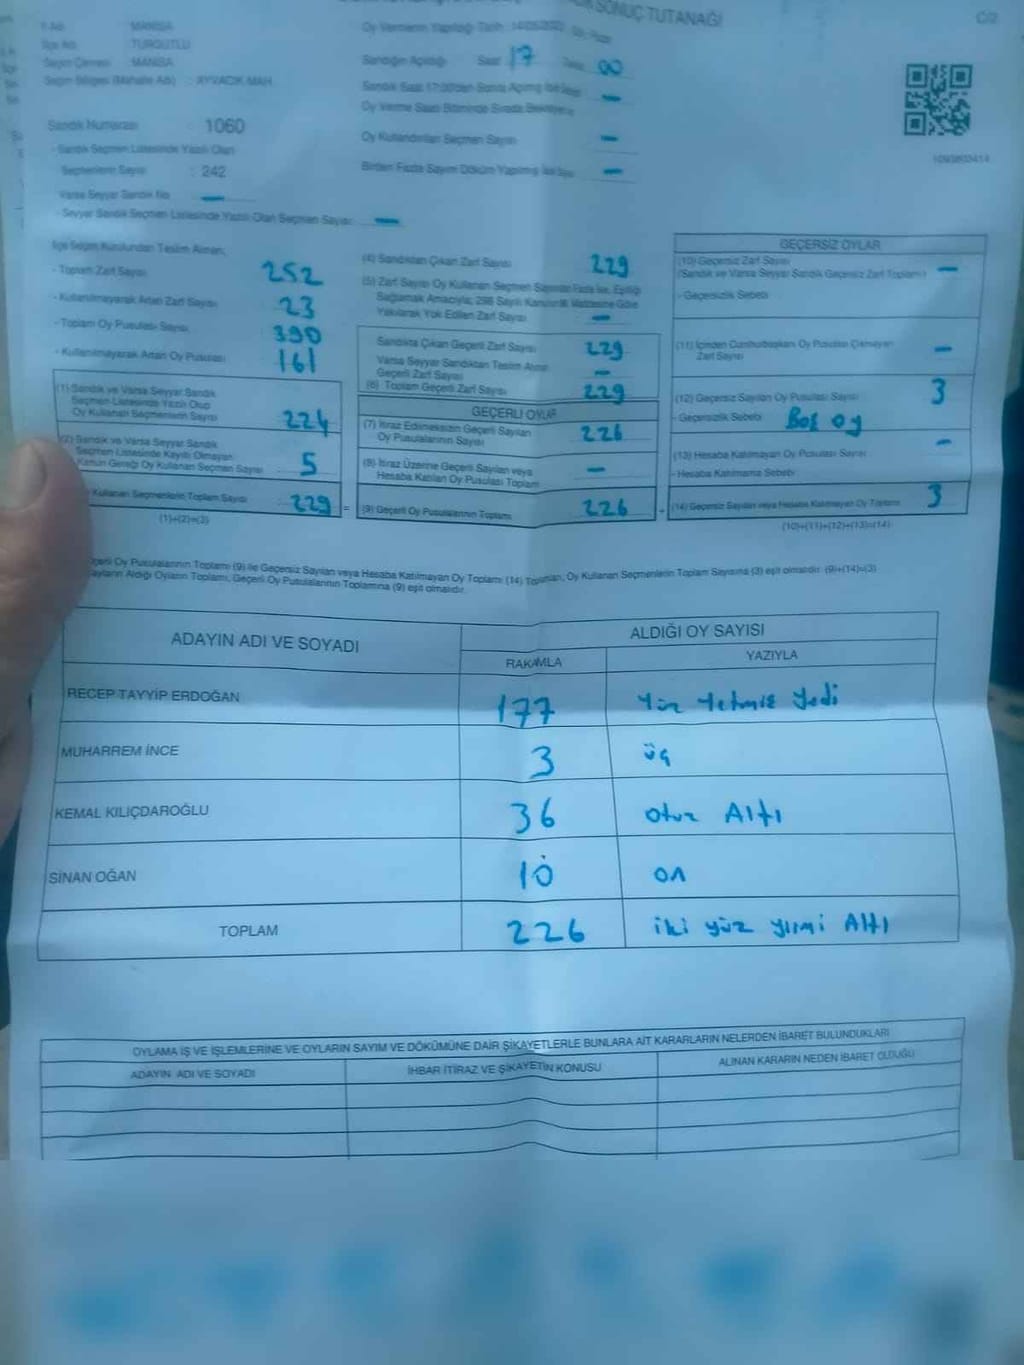 SONUÇ TUTANAĞI
C/2
İlçe Adı : TURGUTLU
MANİSA
Seçim Bölgesi (Mahalle Adı) : AYVACIK MAH.
Sandık Numarası : 1060
- Sandık Seçmen Listesinde Yazılı Olan
Seçmenlerin Sayısı : 242
Varsa Seyyar Sandık No —
- Seyyar Sandık Seçmen Listesinde Yazılı Olan Seçmen Sayısı —
Sandığın Açıldığı Saat 17 00
Oy Kullandırılan Seçmen Sayısı —
Birden Fazla Sayım Döküm Yapılmış İse —
İlçe Seçim Kurulundan Teslim Alınan;
- Toplam Zarf Sayısı 252
- Kullanılmayarak Artan Zarf Sayısı 23
- Toplam Oy Pusulası Sayısı 390
- Kullanılmayarak Artan Oy Pusulası 161
(1) Sandık ve Varsa Seyyar Sandık
Seçmen Listesinde Yazılı Olup
Oy Kullanan Seçmenlerin Sayısı 224
(2) Sandık ve Varsa Seyyar Sandık
Seçmen Listesinde Kayıtlı Olmayan
Kanun Gereği Oy Kullanan Seçmen Sayısı 5
Kullanan Seçmenlerin Toplam Sayısı 229 =
(1)+(2)=(3)
(4) Sandıktan Çıkan Zarf Sayısı 229
(5) Zarf Sayısı Oy Kullanan Seçmen Sayısından Fazla İse, Eşitliği
Sağlamak Amacıyla; 298 Sayılı Kanunun Maddesine Göre
Yakılarak Yok Edilen Zarf Sayısı —
Sandıkta Çıkan Geçerli Zarf Sayısı 229
Varsa Seyyar Sandıktan Teslim Alınan
Geçerli Zarf Sayısı —
(6) Toplam Geçerli Zarf Sayısı 229
GEÇERLİ OYLAR
(7) İtiraz Edilmeksizin Geçerli Sayılan
Oy Pusulalarının Sayısı 226
(8) İtiraz Üzerine Geçerli Sayılan veya
Hesaba Katılan Oy Pusulası Toplamı —
(9) Geçerli Oy Pusulalarının Toplamı 226 +
GEÇERSİZ OYLAR
(10) Geçersiz Zarf Sayısı
(Sandık ve Varsa Seyyar Sandık Geçersiz Zarf Toplamı) —
- Geçersizlik Sebebi
(11) İçinden Cumhurbaşkanı Oy Pusulası Çıkmayan
Zarf Sayısı —
(12) Geçersiz Sayılan Oy Pusulası Sayısı 3
- Geçersizlik Sebebi Boş oy
(13) Hesaba Katılmayan Oy Pusulası Sayısı —
- Hesaba Katılmama Sebebi
(14) Geçersiz Sayılan veya Hesaba Katılmayan Oy Toplamı 3
(10)+(11)+(12)+(13)=(14)
Oy Pusulalarının Toplamı (9) ile Geçersiz Sayılan veya Hesaba Katılmayan Oy Toplamı (14) Toplamları, Oy Kullanan Seçmenlerin Toplam Sayısına (3) eşit olmalıdır. (9)+(14)=(3)
Aldığı Oyların Toplamı, Geçerli Oy Pusulalarının Toplamına (9) eşit olmalıdır.
ADAYIN ADI VE SOYADI
ALDIĞI OY SAYISI
RAKAMLA YAZIYLA
RECEP TAYYİP ERDOĞAN 177 Yüz Yetmiş Yedi
MUHARREM İNCE 3 üç
KEMAL KILIÇDAROĞLU 36 otuz Altı
SİNAN OĞAN 10 on
TOPLAM 226 iki yüz yirmi Altı
OYLAMA İŞ VE İŞLEMLERİNE VE OYLARIN SAYIM VE DÖKÜMÜNE DAİR ŞİKAYETLERLE BUNLARA AİT KARARLARIN NELERDEN İBARET BULUNDUKLARI
ADAYIN ADI VE SOYADI
İHBAR İTİRAZ VE ŞİKAYETİN KONUSU
ALINAN KARARIN NEDEN İBARET OLDUĞU